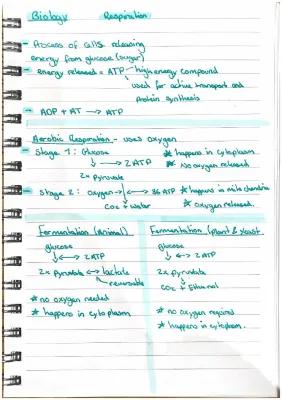 Biology Respiration
- Process of cells releasing
energy from glucose (sugar)
- energy released = ATP - high energy compound
used for active transport and
protein synthesis
- ADP + Pi → ATP
Aerobic Respiration - uses oxygen
- Stage 1: Glucose * happens in cytoplasm
↓ → 2 ATP * No oxygen released
2x Pyruvate
- Stage 2: oxygen → 36 ATP * happens in mitochondria
↓ * oxygen released.
CO2 + water
Fermentation (Animal)
glucose
↓ ↔ 2 ATP
2x Pyruvate ↔ lactate
reversable
* no oxygen needed
* happens in cytoplasm
Fermentation (plant & yeast
glucose
↓ ↔ 2 ATP
2x Pyruvate
↓
CO2 + Ethanol
* no oxygen required
* happens in cytoplasm.